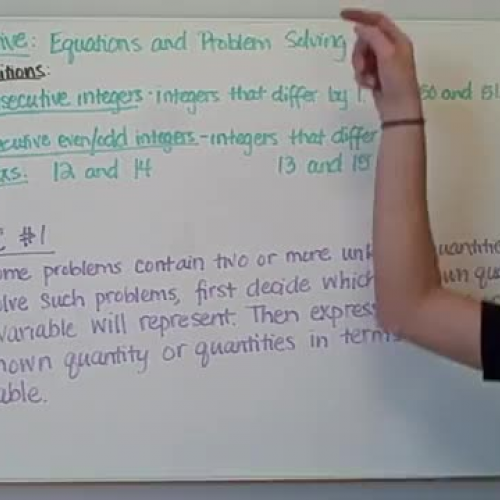 ive: Equations and Problem Solving
itions:
secutive integers - integers that differ by 1. 50 and 51
cutive even/odd integers - integers that differ
exs: 12 and 14 13 and 15
#1
ome problems contain two or more un quantitie
olve such problems, first decide which un qua
variable will represent. Then express
nown quantity or quantities in terms
able.